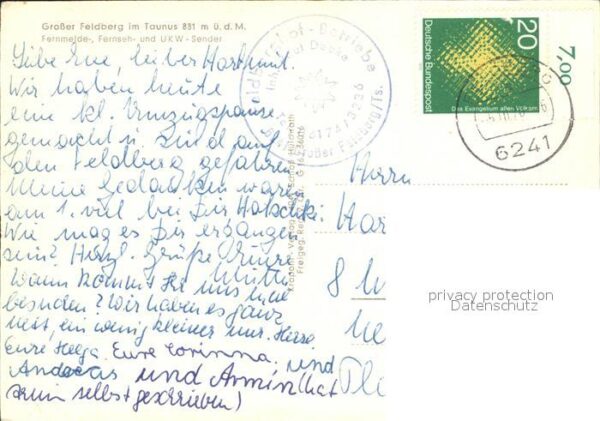 Großer Feldberg im Taunus 881 m ü. d. M.
Fernmelde-, Fernseh- und UKW-Sender
Liebe Eve, lieber Hartmut.
Wir haben heute
eine kl. Umzugspause
gemacht u. sind auf
den Feldberg gefahren
Meine Gedanken waren
am 1. viel bei Dir
Wie mag es Dir ergangen
sein? Herzl. Grüße Eure
Mutti
Wann kommt Ihr uns mal
besuchen? Wir haben es ganz
nett, ein wenig kleiner nur. Herzl.
Eure Helga. Eure Corinna. und
Andreas und Armin (hat
selbst geschrieben)
Feldberghof-Betriebe
Großer Feldberg/Ts.
20
Deutsche Bundespost
Das Evangelium allen Völkern
7,00
6241
Herrn
Har
8
privacy protection
Datenschutz